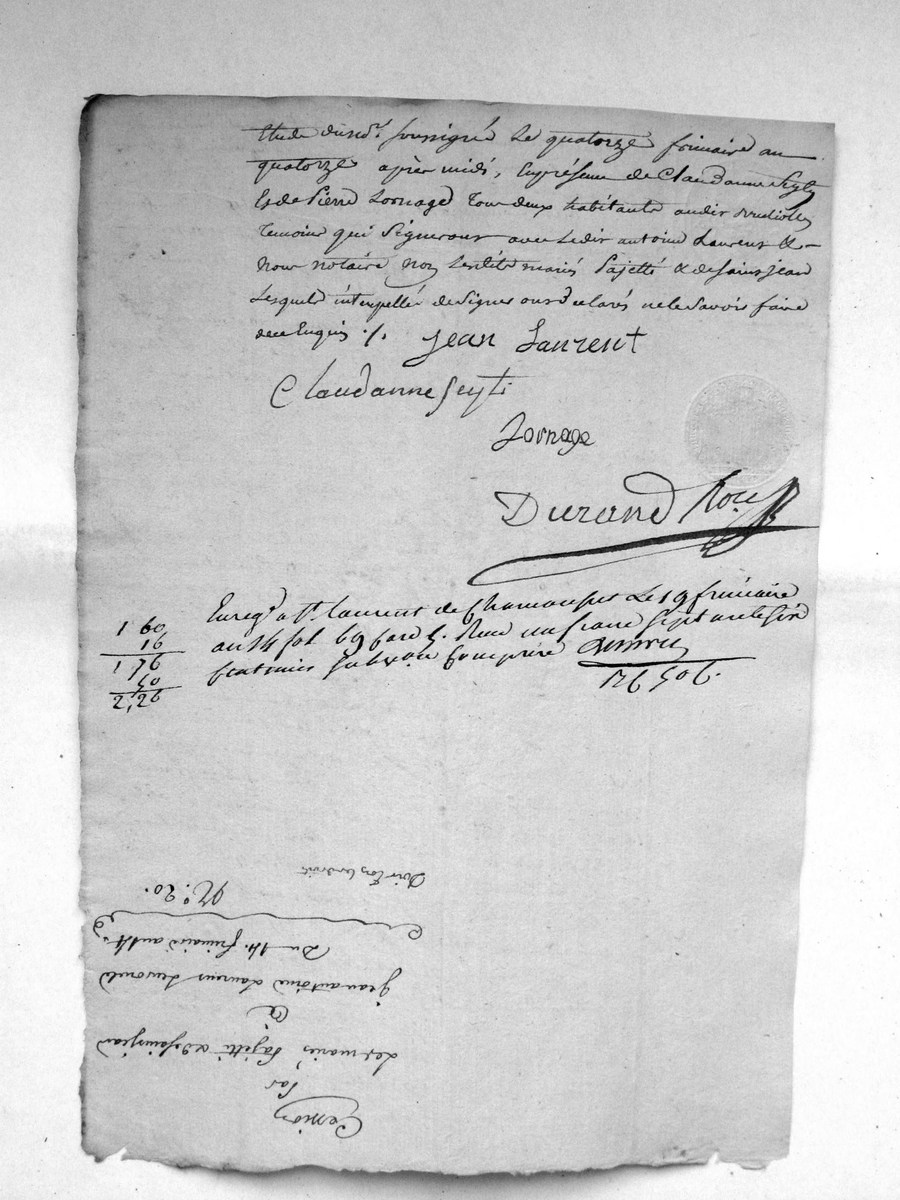 Etude du nd.t soussigné le quatorze frimaire an
quatorze après midi, En présence de Claudanne Seyt
Et de Pierre Jornage Tous deux habitants audit
Temoins qui Signeront avec Ledit antoine Laurent &
nous notaire, non Lesdits mariés Pajetti & de Saint jean
Lesquels interpellés de signer ont déclarés ne le Savoir faire
de ce Enquis ./. Jean Laurent
Claudanne Seyti
Jornage
Durand No.re
Enreg.é a St. laurent de Chamousset Le 19 frimaire
an 14 fol 69 Reçu un franc Sept
centimes Subvon Comprise
1 60
16
1 76
50
2,26
Cession
Par
Les mariés Pajetti & de Saint jean
à
jean antoine Laurent
Du 14. frimaire an 14
N.o 20.